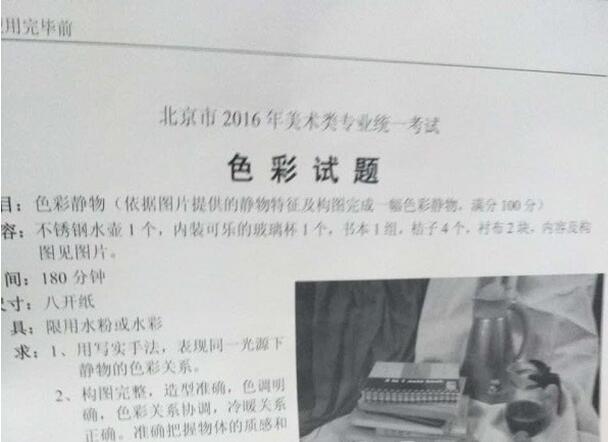 用完毕前
北京市2016年美术类专业统一考试
色彩试题
目：色彩静物（依据图片提供的静物特征及构图完成一幅色彩静物，满分100分）
容：不锈钢水壶1个，内装可乐的玻璃杯1个，书本1组，桔子4个，衬布2块，内容及构
图见图片。
间：180分钟
尺寸：八开纸
具：限用水粉或水彩
求：1、用写实手法，表现同一光源下
静物的色彩关系。
2、构图完整，造型准确，色调明
确，色彩关系协调，冷暖关系
正确。准确把握物体的质感和